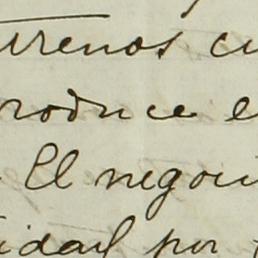 rrenos cu
roduce e
El negoci
idad por